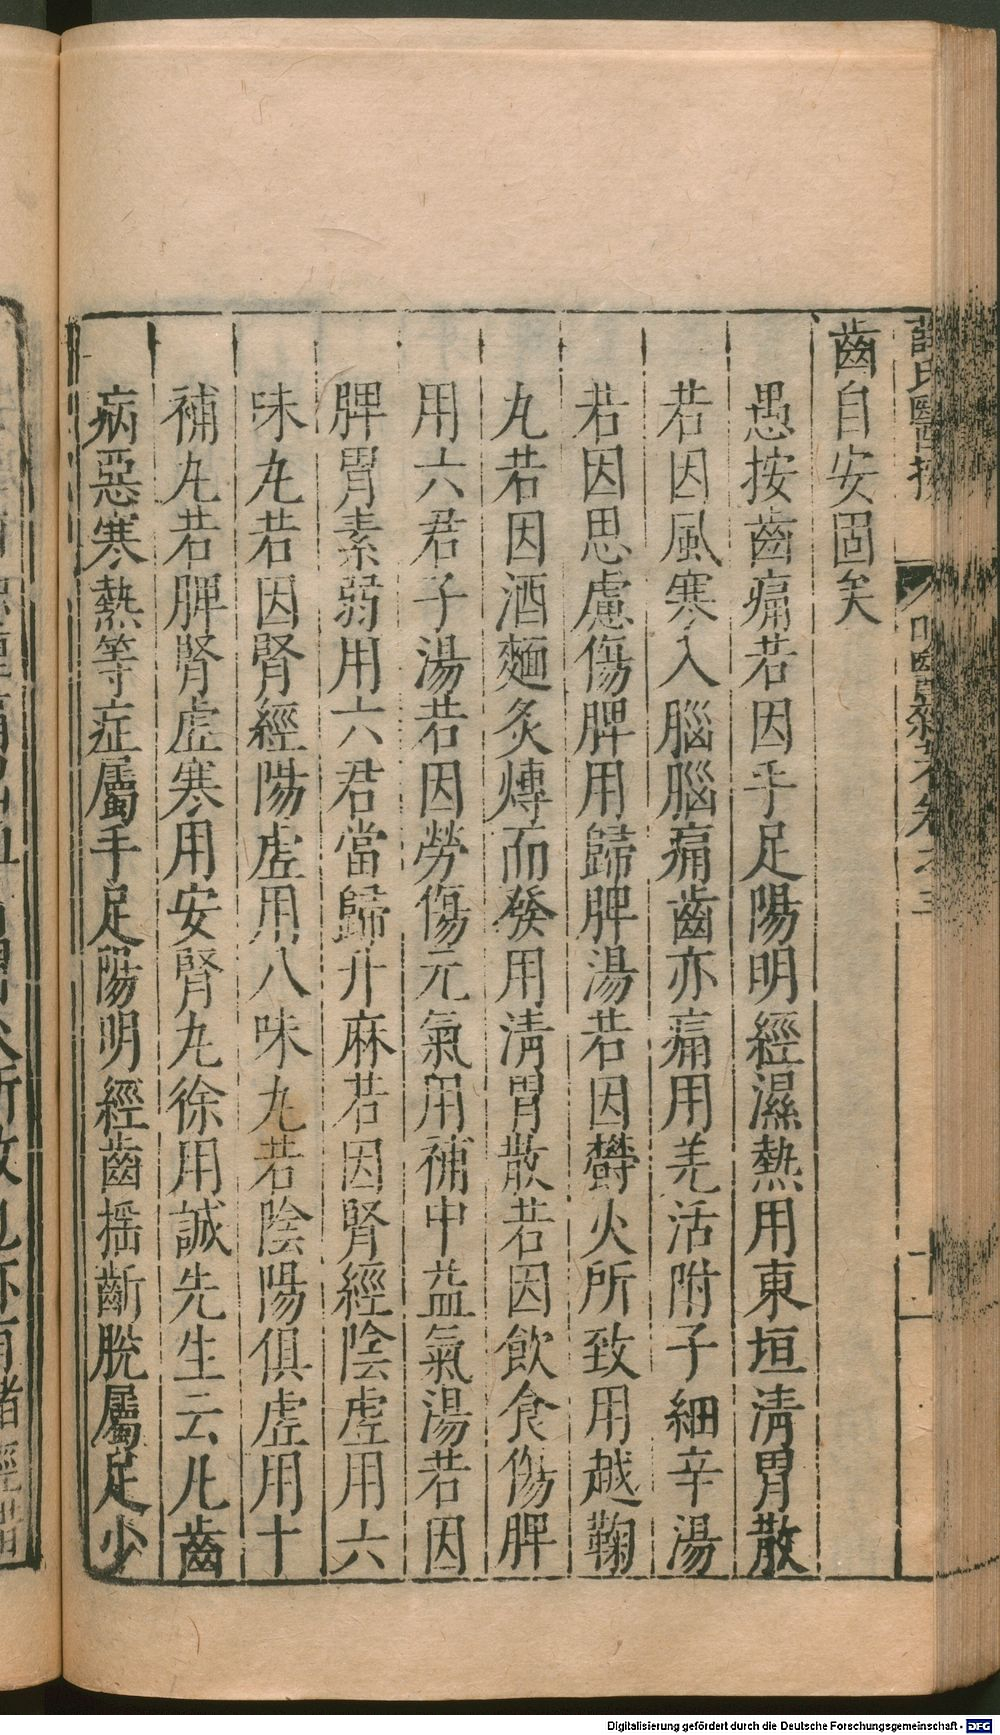 齒自安固矣
愚按齒痛若因手足陽明經濕熱用東垣清胃散
若因風寒入腦腦痛齒亦痛用羌活附子細辛湯
若因思慮傷脾用歸脾湯若因鬱火所致用越鞠
丸若因酒麵炙煿而發用清胃散若因飲食傷脾
用六君子湯若因勞傷元氣用補中益氣湯若因
脾胃素弱用六君當歸升麻若因腎經陰虛用六
味丸若因腎經陽虛用八味丸若陰陽俱虛用十
補丸若脾腎虛寒用安腎丸徐用誠先生云凡齒
病惡寒熱等症屬手足陽明經齒揺斷脫屬足少
薛氏醫按
明醫雜著卷之三
Digitalisierung gefördert durch die Deutsche Forschungsgemeinschaft - DFG